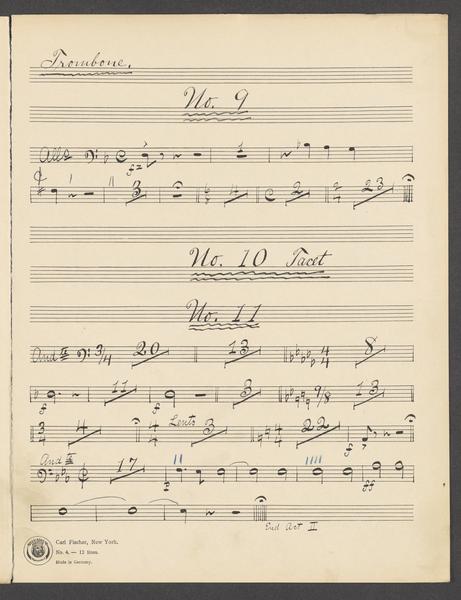 Trombone.
No. 9
Allo C fz 1
3 4 C 2 2 23
No. 10 Tacet
No. 11
And te 3/4 20 13 4/4 8
f 11 f 3 9/8 13
3/4 4 4/4 Lento 3 4/4 22 f
And te 17 f ff
End Act II
Carl Fischer, New York.
No. 4. — 12 lines.
Made in Germany.